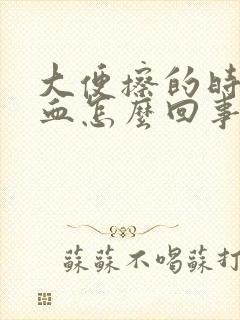 大便擦的時
血怎麼回事
蘇蘇不喝蘇打